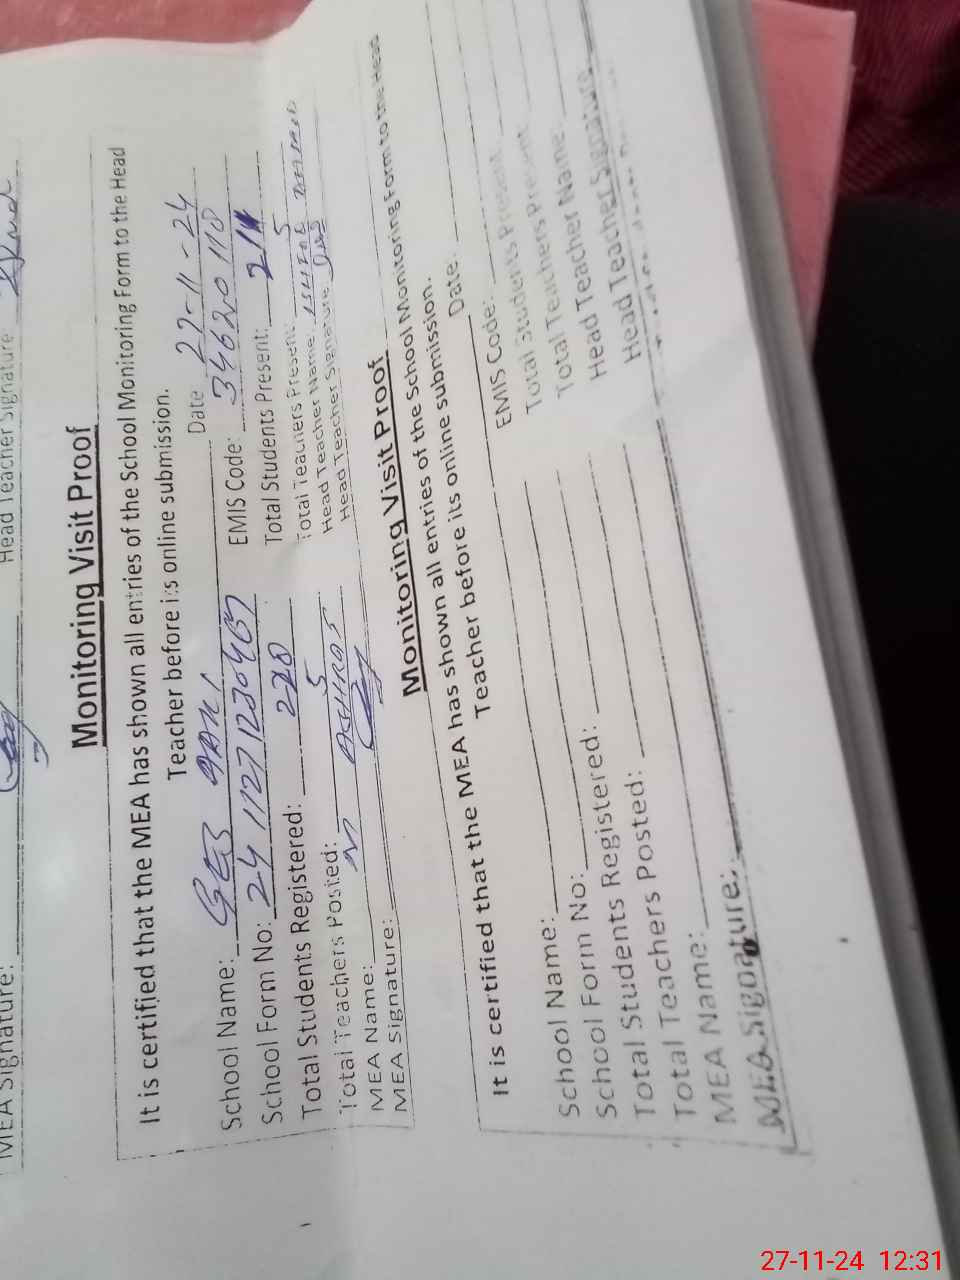 MEA Signature: Head Teacher Signature
Monitoring Visit Proof
It is certified that the MEA has shown all entries of the School Monitoring Form to the Head
Teacher before its online submission.
Date 27-11-24
School Name: GES
EMIS Code: 34620110
School Form No: 24 11271230407
Total Students Present: 211
Total Students Registered: 220
Total Teachers Present: 5
Total Teachers Posted: 5
Head Teacher Name:
MEA Name: M ASHRAF
Head Teacher Signature
MEA Signature:
Monitoring Visit Proof
It is certified that the MEA has shown all entries of the School Monitoring Form to the Head
Teacher before its online submission.
Date:
School Name:
EMIS Code:
School Form No:
Total Students Present:
Total Students Registered:
Total Teachers Present:
Total Teachers Posted:
Head Teacher Name:
MEA Name:
Head Teacher Signature
MEA Signature:
27-11-24 12:31